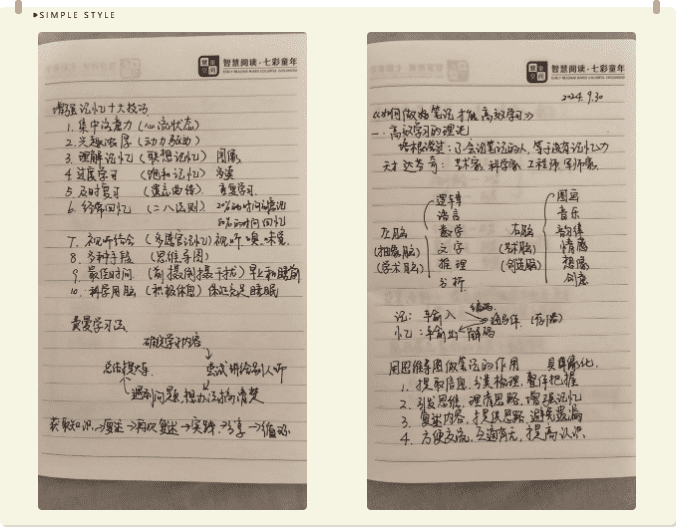 SIMPLE STYLE
智慧阅读·七彩童年
增强记忆十大技巧
1. 集中注意力(心流状态)
2. 兴趣浓厚(动力驱动)
3. 理解记忆(联想记忆) 图像
4. 过度学习(饱和记忆)
5. 及时复习(遗忘曲线) 重复学习
6. 经常回忆(二八法则) 20%的时间
80%的时间回忆
7. 视听结合(多感官记忆)视、听、嗅、味觉
8. 多种手段(思维导图)
9. 最佳时间(前摄、倒摄干扰)早上和睡前
10. 科学用脑(积极休息)保证充足睡眠
费曼学习法
确定学习内容
总结提炼 尝试讲给别人听
遇到问题,想办法搞清楚
获取知识→复述→再次复述→实践→分享→循环
智慧阅读·七彩童年
2024.9.30
《如何做好笔记才能高效学习》
一、高效学习的理论
培根说过:不会记笔记的人,等于没有记忆力
天才达芬奇:艺术家、科学家、工程师、军师家。
逻辑 图画
语言 音乐
左脑 数学 右脑 韵律
(抽象脑) 文字 (艺术脑) 情感
(学术脑) 推理 (创造脑) 想像
分析 创意
编码
记:手输入
(存储)
忆:手输出 解码
用思维导图做笔记的作用 具像化
1. 提取信息,分类梳理,整体把握
2. 引发思维,理清思路,增强记忆
3. 复述内容,提供思路,避免遗漏
4. 方便交流,互通有无,提高认识